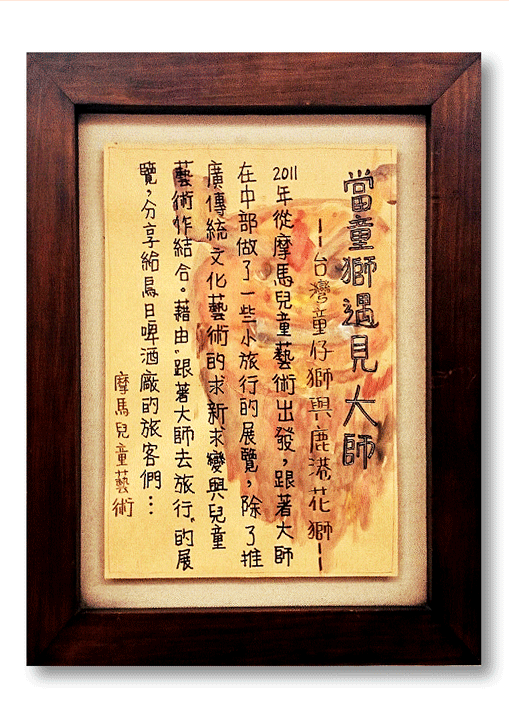 當童獅遇見大師
--台灣童仔獅與鹿港花獅--
2011年從摩馬兒童藝術出發，跟著大師
在中部做了一些小旅行的展覽，除了推
廣傳統文化藝術的求新求變與兒童
藝術作結合。藉由"跟著大師去旅行"的展
覽，分享給烏日啤酒廠的旅客們…
摩馬兒童藝術